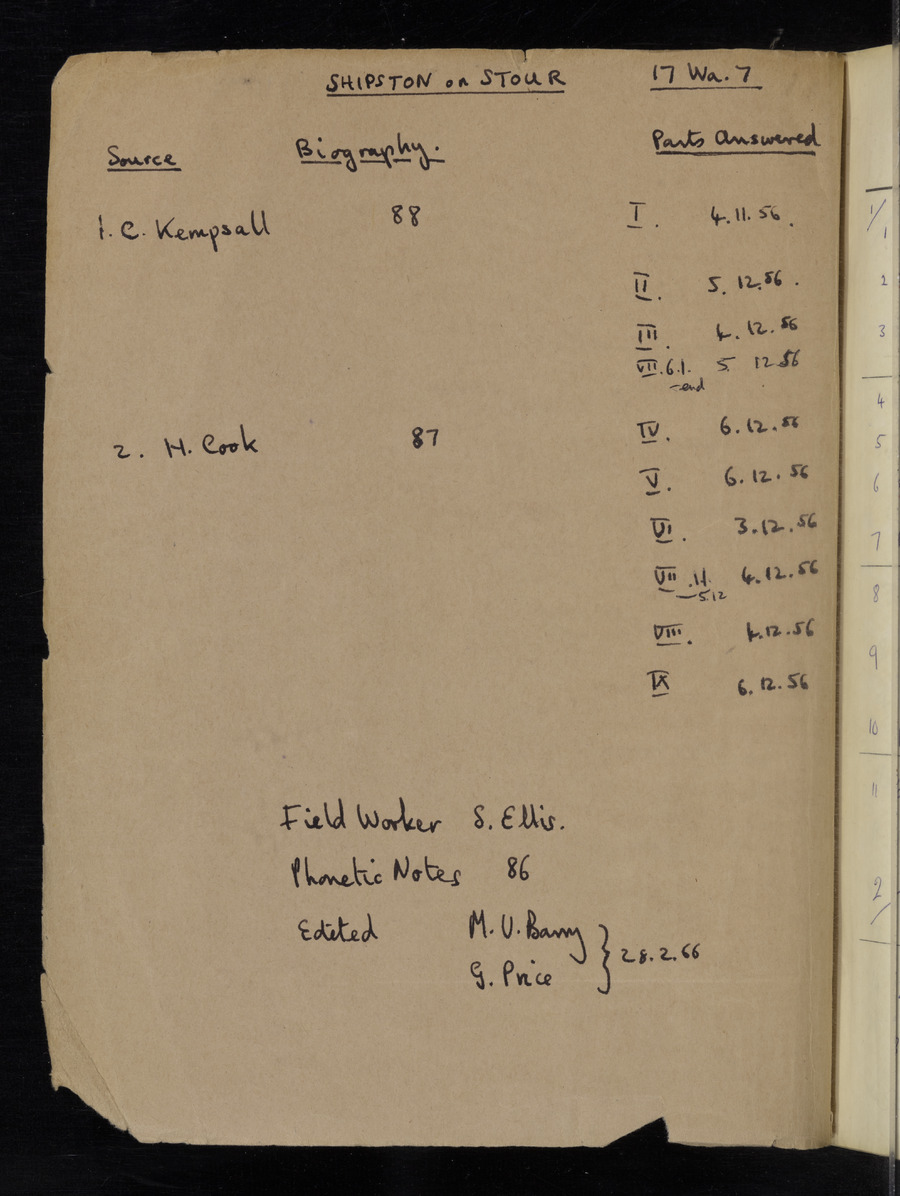 SHIPSTON on STOUR 17 Wa. 7
Source Biography. Parts Answered
1. C. Kempsall 88 I. 4.11.56.
II. 5.12.56.
III. 4.12.56
VII.6.1. 5 12 56
-end
2. H. Cook 87 IV. 6.12.56
V. 6.12.56
VI. 3.12.56
VII .1.1. 4.12.56
—5.12
VIII. 4.12.56
IX 6.12.56
Field Worker S. Ellis.
Phonetic Notes 86
Edited M. V. Barry } 28.2.66
G. Price
1/
1
2
3
4
5
6
7
8
9
10
11
2/